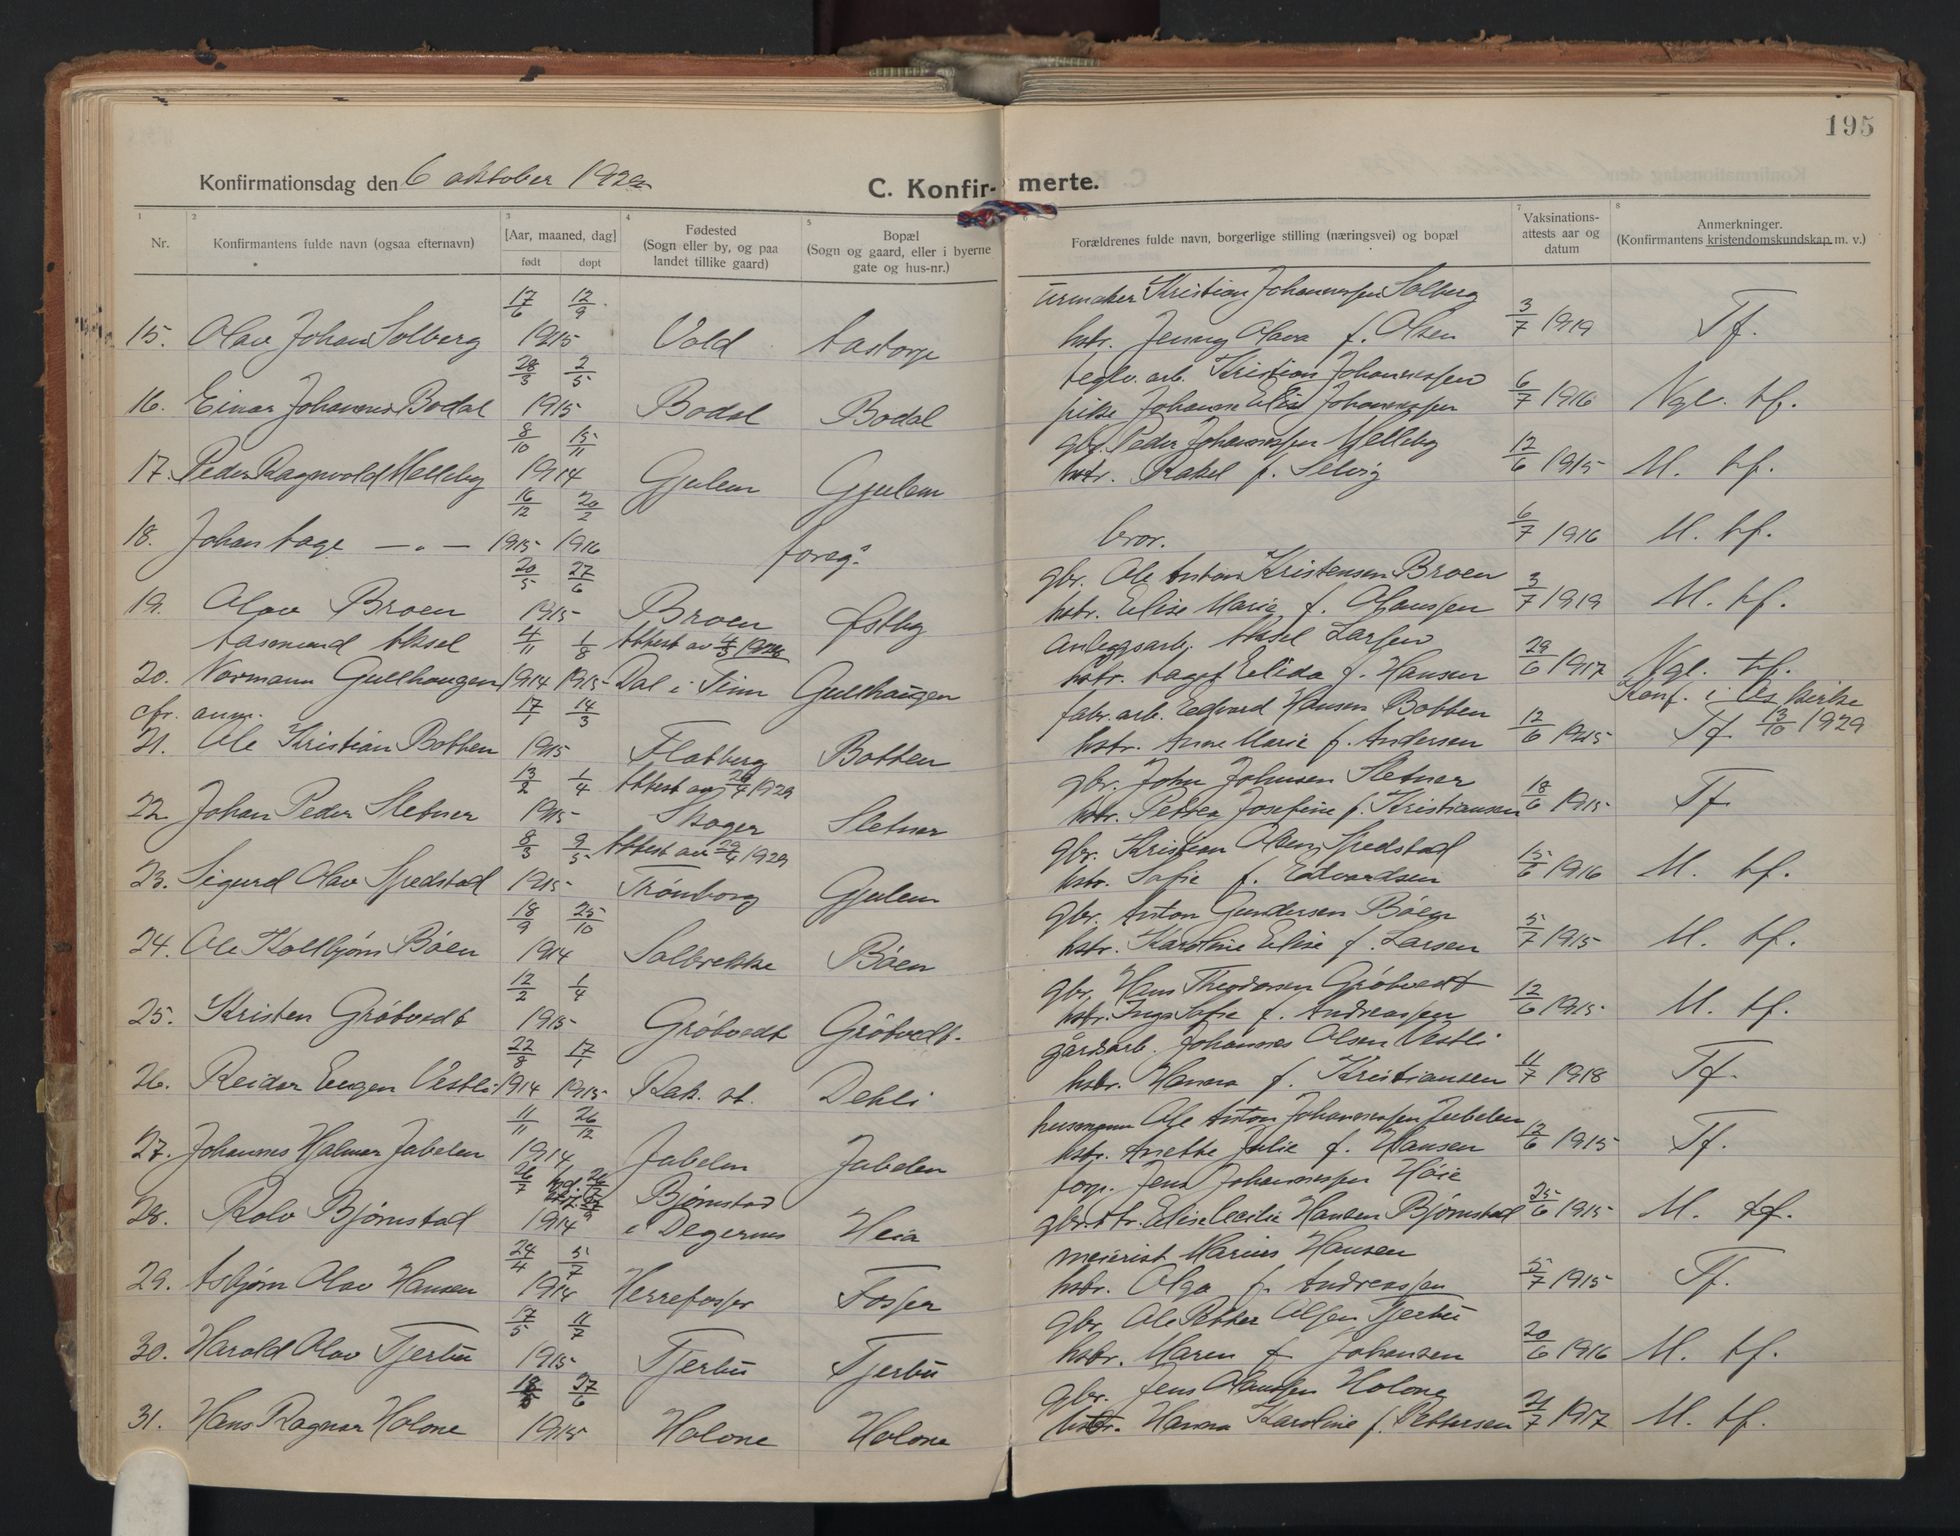 195
Konfirmationsdag den 6 oktober 1929
C. Konfirmerte.
1 2 3 4 5 6 7 8
Nr.
Konfirmantens fulde navn (ogsaa efternavn)
[Aar, maaned, dag]
født døpt
Fødested
(Sogn eller by, og paa
landet tillike gaard)
Bopæl
(Sogn og gaard, eller i byerne
gate og hus-nr.)
Forældrenes fulde navn, borgerlige stilling (næringsvei) og bopæl
Vaksinations-
attests aar og
datum
Anmerkninger.
(Konfirmantens kristendomskundskap m. v.)
17/6 12/9 urmaker Kristian Johannessen Solberg
15. Olav Johan Solberg 1915 Vold Aastorp hstr. Jenny Olava f. Olsen 3/7 1919 Tf.
28/3 2/5 teglv. arb. Kristian Johannessen
16. Einar Johannes Bodal 1915 Bodal Bodal pike Johanne Elise Johannessen 6/7 1916 Ngl. tf.
8/10 15/11 gbr. Peder Johannessen Melleby
17. Peder Ragnvold Melleby 1914 Gjulem Gjulem hstr. Rakel f. Selvig 12/6 1915 M. tf.
16/12 20/2
18. Johan Aage —„— 1915 1916 foreg.s bror. 6/7 1916 M. tf.
20/5 27/6 gbr. Ole Anton Kristensen Broen
19. Olav Broen 1915 Broen Østby hstr. Elise Marie f. Olaussen 3/7 1919 M. tf.
Aasmund Aksel 4/11 1/8 Attest av 4/3 1928 anleggsarb. Aksel Larsen
20. Normann Gullhaugen 1914 1915 Dal i Tinn Gullhaugen hstr. Aagot Elida f. Hansen 29/6 1917 Ngl. tf.
cfr. anm. 17/1 14/3 fabr. arb. Edvard Hansen Botten Konf. i Os kirke
21. Ole Kristian Botten 1915 Flatberg Botten hstr. Anne Marie f. Andersen 12/6 1915 Tf. 13/10 1929
13/2 1/4 Attest av 26/4 1929 gbr. John Johnsen Sletner
22. Johan Peder Sletner 1915 Skoger Sletner hstr. Petrea Josefine f. Kristiansen 18/6 1915 Tf.
8/3 9/5 Attest av 29/4 1929 gbr. Kristian Olsen Spedstad
23. Sigurd Olav Spedstad 1915 Trømborg Gjulem hstr. Sofie f. Edvardsen 15/6 1916 M. tf.
18/9 25/10 gbr. Anton Gundersen Böen
24. Ole Kolbjørn Böen 1914 Solbrekke Böen hstr. Karoline Elise f. Larsen 5/7 1915 M. tf.
12/2 1/4 gbr. Hans Theodorsen Grötvedt
25. Kristen Grötvedt 1915 Grötvedt Grötvedt. hstr. Inga Sofie f. Andreassen 12/6 1915 M. tf.
22/8 17/1 gårdsarb. Johannes Olsen Vestli
26. Reidar Eugen Vestli 1914 1915 Rak. st. Dehli hstr. Hanna f. Kristiansen 11/7 1918 Tf.
11/11 26/12 husmann Ole Anton Johannessen Jubelen
27. Johannes Hjalmar Jubelen 1914 Jubelen Jubelen hstr. Anette Julie f. Hansen 12/6 1915 Tf.
26/7 forp. Jens Johannessen Höie
28. Rolv Bjørnstad 1914 Bjørnstad i Degernes Heia gbr.dtr. Elise Cecilie Hansen Bjørnstad 25/6 1915 M. tf.
24/4 5/7 meierist Marius Hansen
29. Asbjørn Olav Hansen 1914 Herrefosser Fosser hstr. Olga f. Andreassen 5/7 1915 Tf.
17/5 11/7 gbr. Ole Petter Olsen Tjerbu
30. Harald Olav Tjerbu 1915 Tjerbu Tjerbu hstr. Maren f. Johansen 20/6 1916 M. tf.
27/6 gbr. Jens Olaussen Holone
31. Hans Ragnar Holone 1915 Holone Holone hstr. Hanna Karoline f. Pettersen 21/7 1917 M. tf.